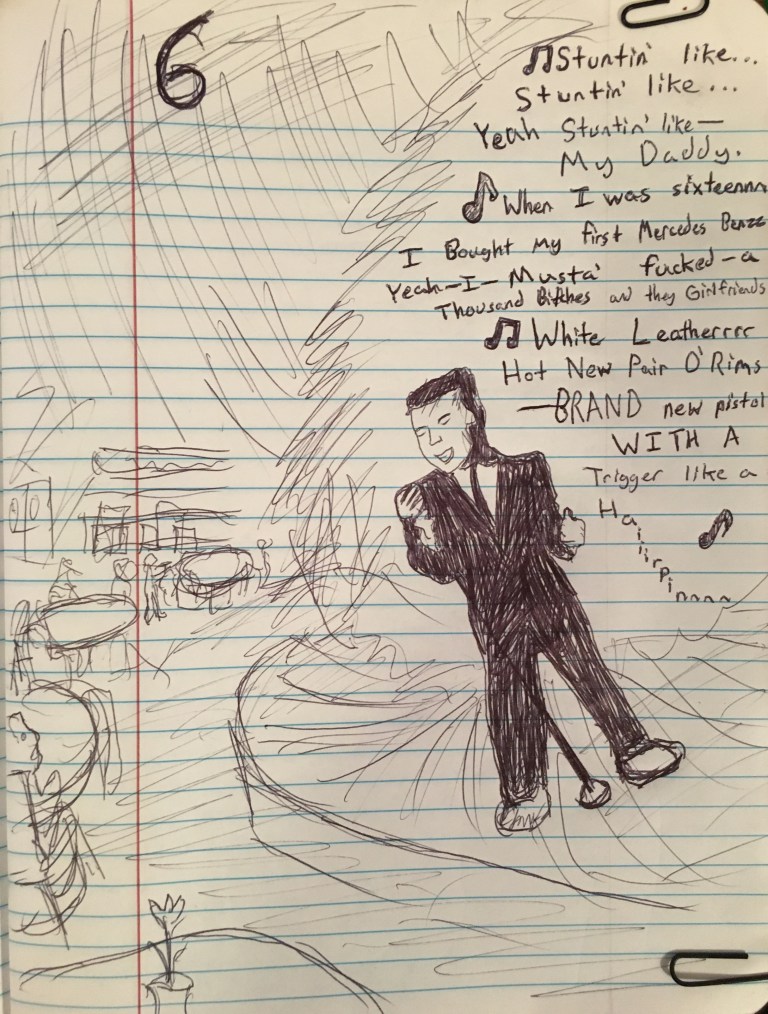 6
Stuntin' like...
Stuntin' like...
Yeah Stuntin' like—
My Daddy.
When I was sixteennn
I Bought my first Mercedes Benzz
Yeah—I—Musta' fucked—a
Thousand Bitches and they Girlfriends
White Leatherrrr
Hot New Pair O' Rims
—BRAND new pistol
WITH A
Trigger like a
Haiiirpinnnn